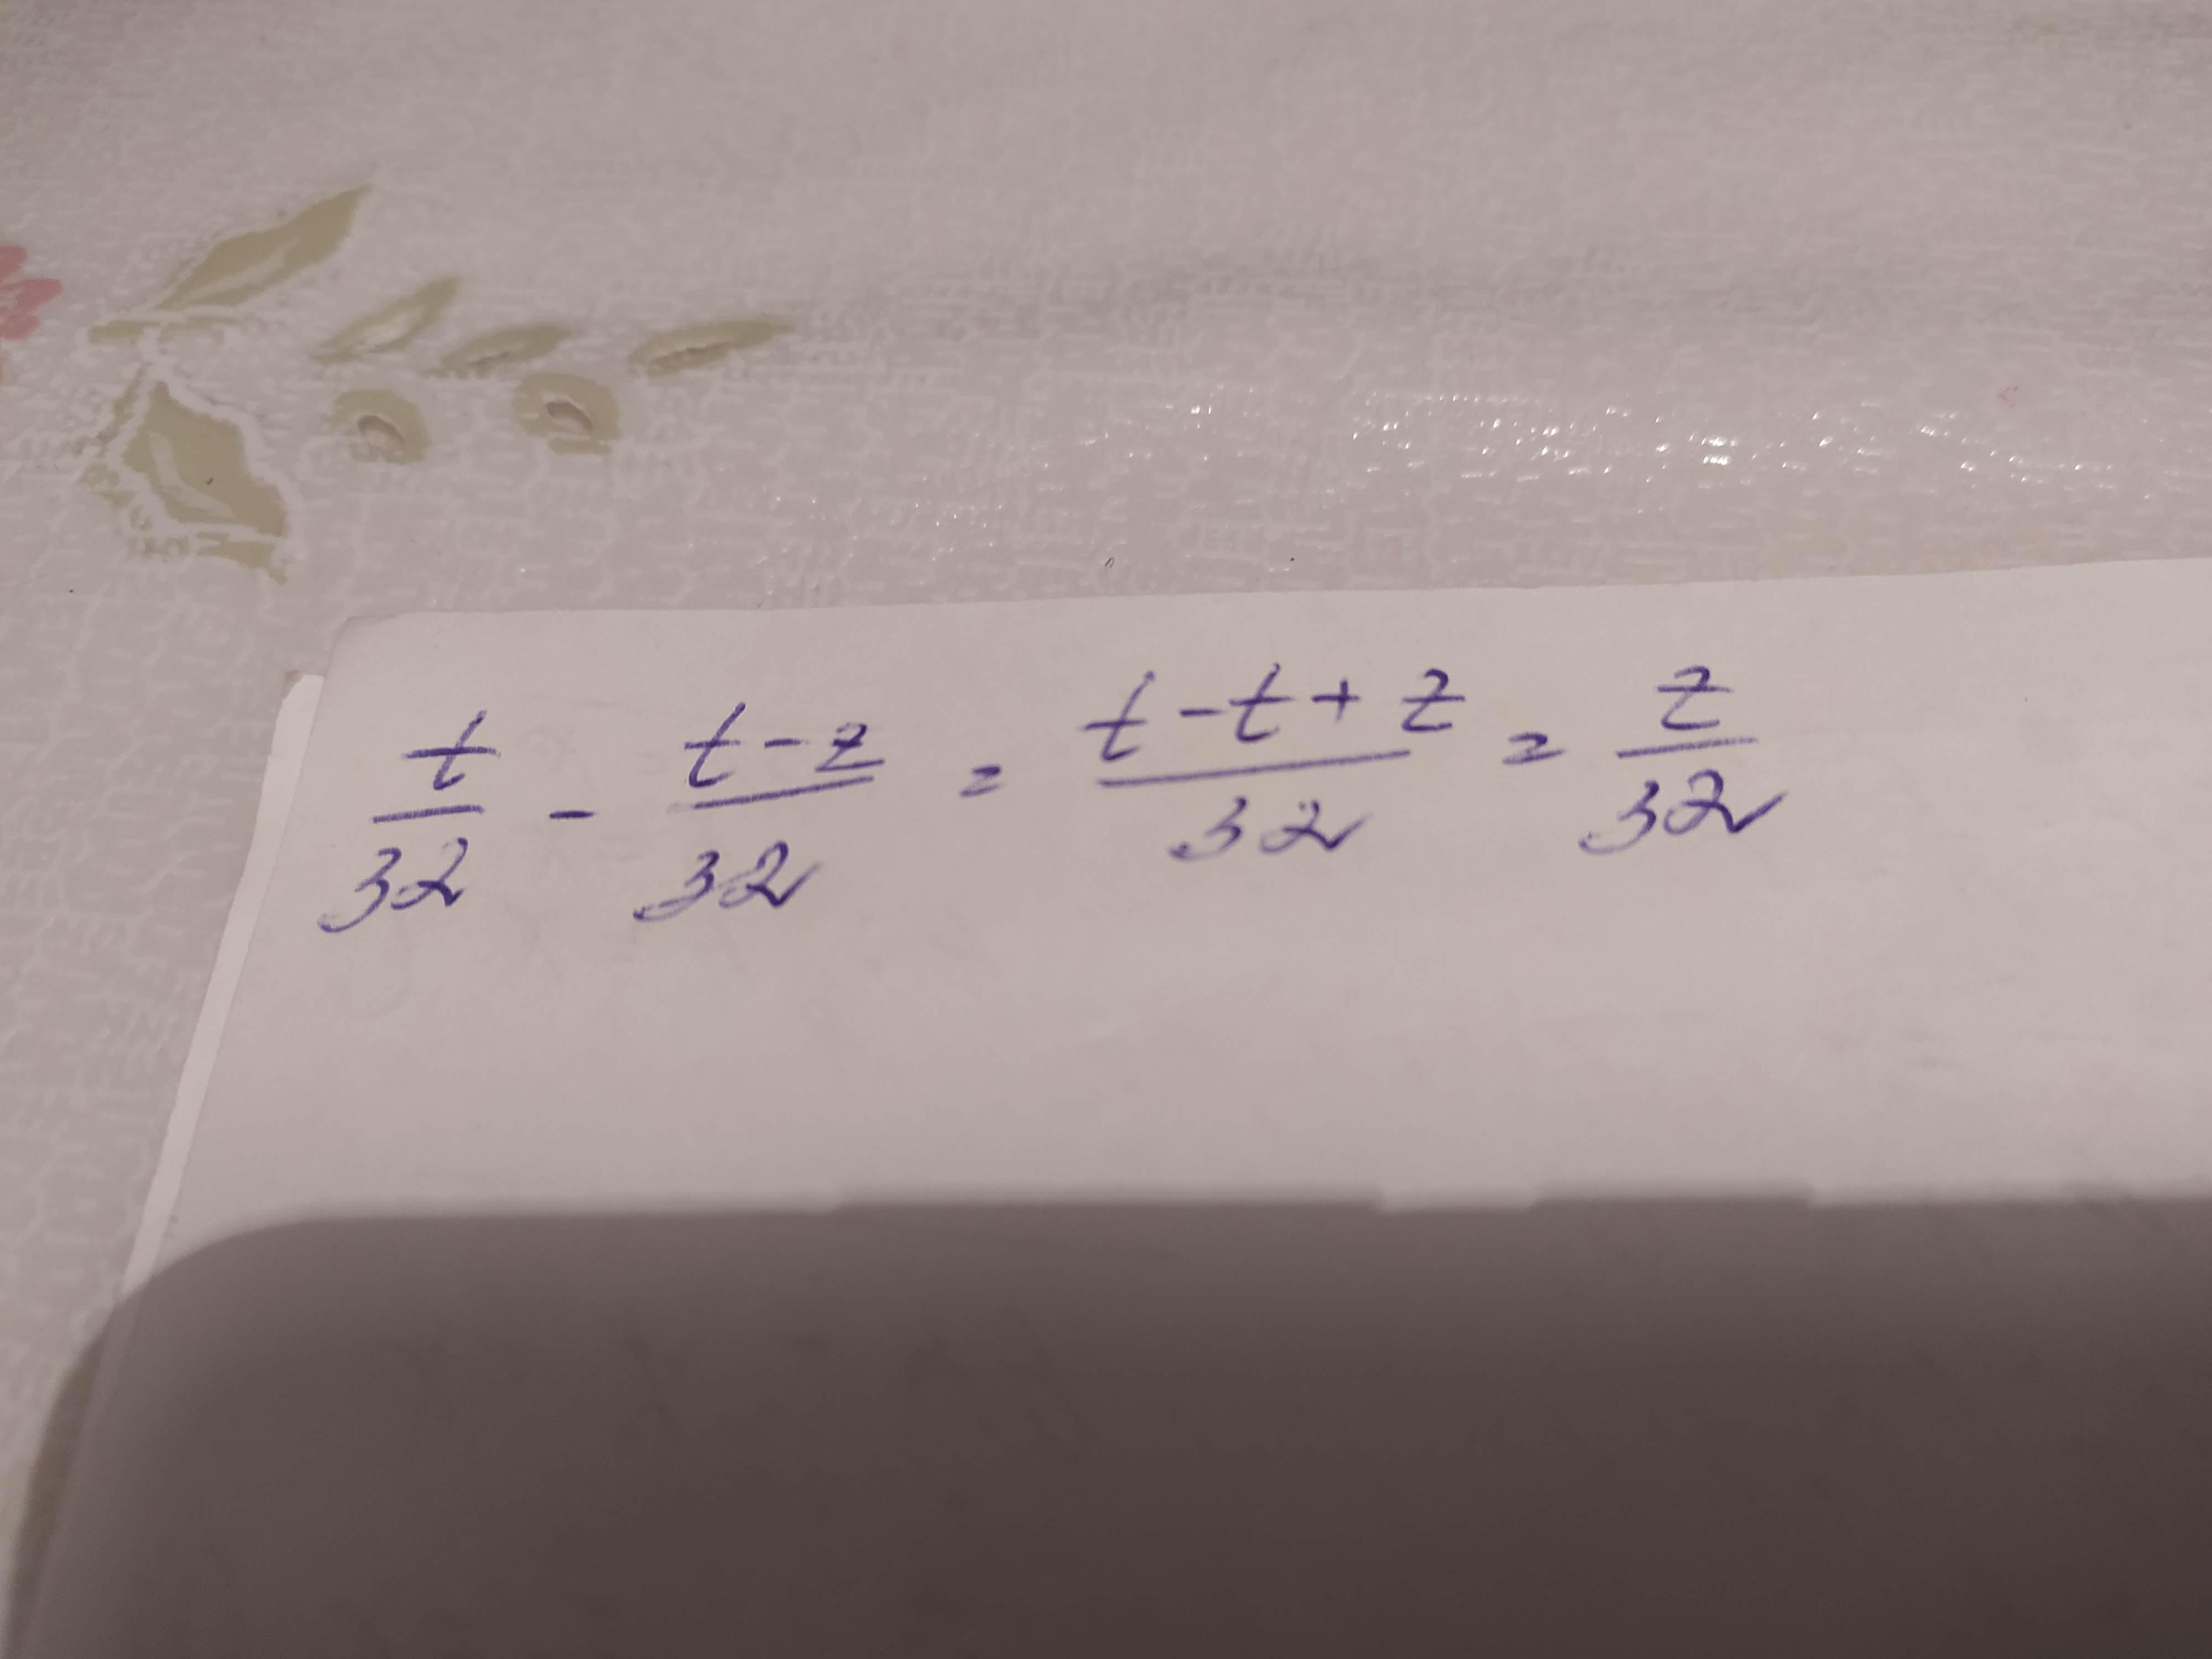 t/32 - t-z/32 = t-t+z/32 = z/32